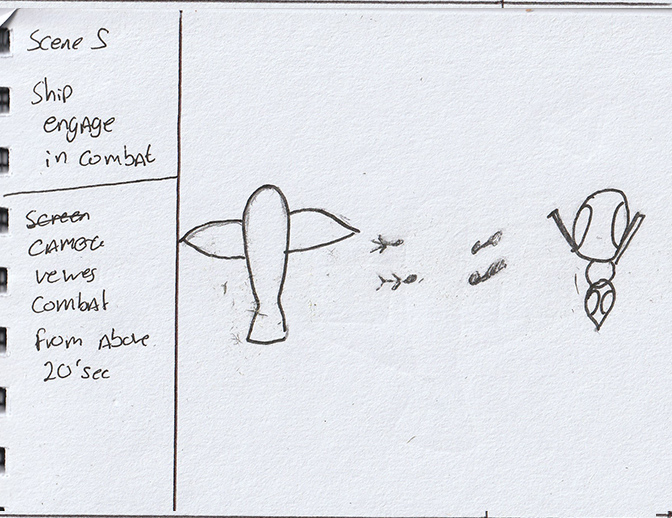 Scene 5
Ship
engage
in combat
Screen
vewes
combat
from above
20'sec